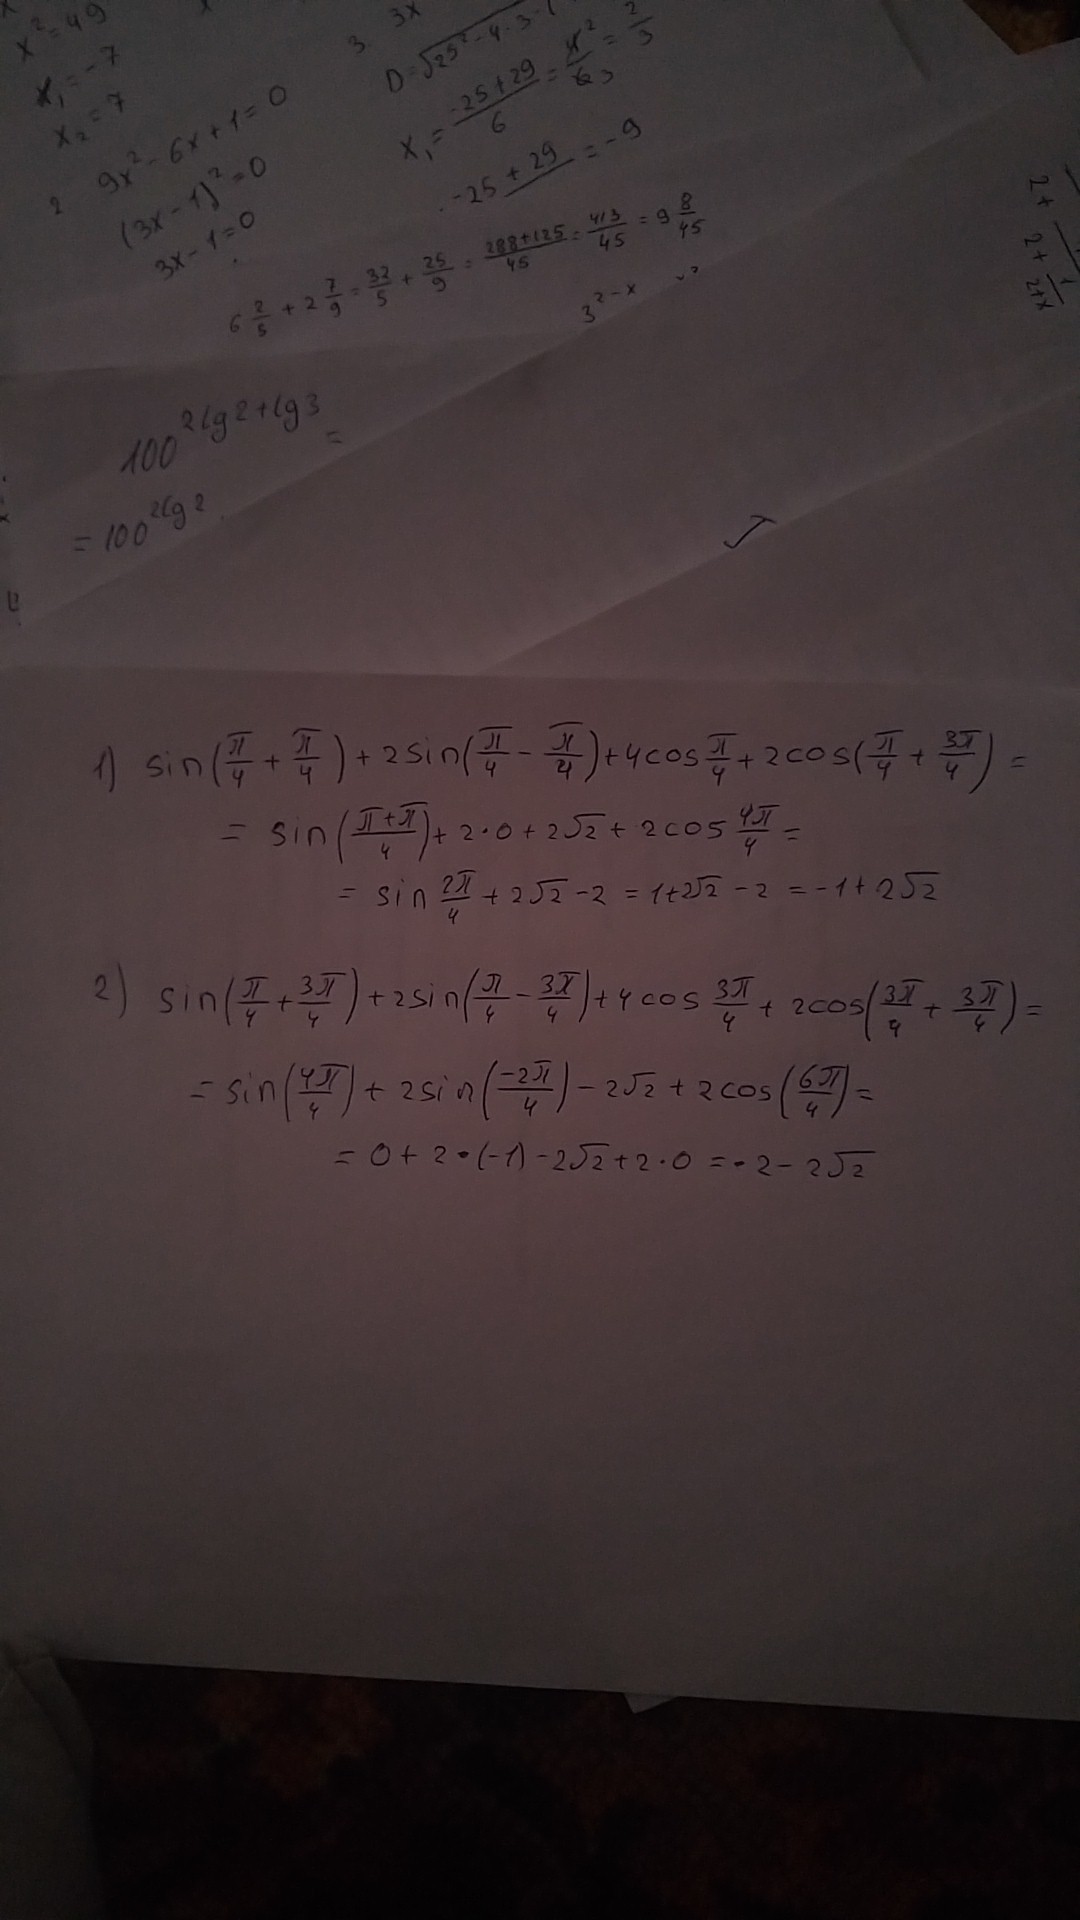 x² = 49
x₁ = -7
x₂ = 7
2 9x² - 6x + 1 = 0
(3x - 1)² = 0
3x - 1 = 0
3. 3x
D = √25² - 4 · 3 ·
x₁ = (-25 + 29)/6 = = 2/3
-25 + 29 = -9
6 2/5 + 2 7/9 = 32/5 + 25/9 = (288+125)/45 = 413/45 = 9 8/45
3^(2-x)
2 +
2 +
1/(2+x)
100^(2lg2+lg3) =
= 100^(2lg2)
1) sin(π/4 + π/4) + 2sin(π/4 - π/4) + 4cos π/4 + 2cos(π/4 + 3π/4) =
= sin((π+π)/4) + 2·0 + 2√2 + 2cos 4π/4 =
= sin 2π/4 + 2√2 - 2 = 1+2√2 - 2 = -1 + 2√2
2) sin(π/4 + 3π/4) + 2sin(π/4 - 3π/4) + 4cos 3π/4 + 2cos(3π/4 + 3π/4) =
= sin(4π/4) + 2sin(-2π/4) - 2√2 + 2cos(6π/4) =
= 0 + 2·(-1) - 2√2 + 2·0 = -2 - 2√2